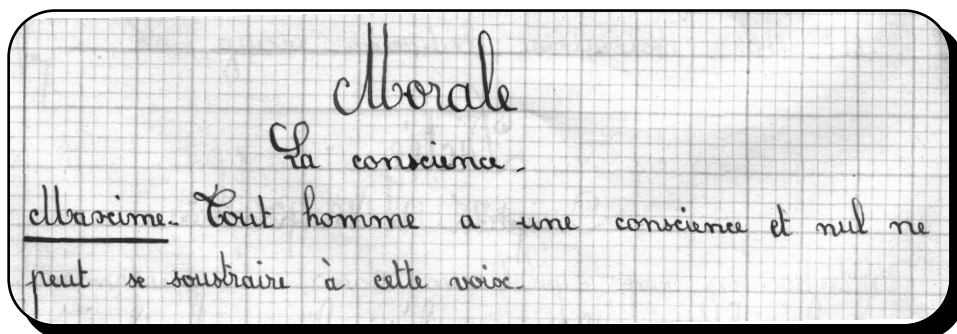 Morale
La conscience.
Maxime. Tout homme a une conscience et nul ne
peut se soustraire à cette voix.